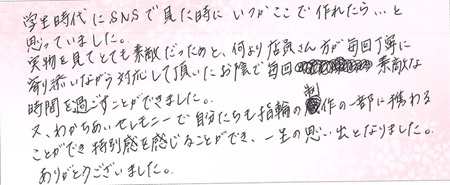 学生時代にSNSで見た時にいつかここで作れたら…と
思っていました。
実物を見てとても素敵だったのと、何より店員さん方が毎回丁寧に
寄り添いながら対応して頂いたお陰で毎回素敵な
時間を過ごすことができました。
又、わかちあいセレモニーで自分たちも指輪の制作の一部に携わる
ことができ特別感を感じることができ、一生の思い出となりました。
ありがとうございました。